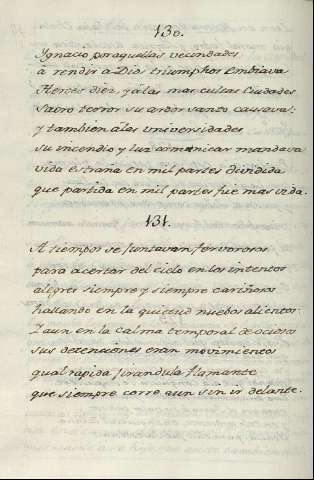 130.
Ygnacio por aquellas vecindades
à rendir a Dios triumphos embiava
Heroes diez, y álas mas cultas Ciudades
Sacro terror su ardor santo causava:
y tambien álas universidades
su incendio y luz comunicar mandava
vida estraña en mil partes dividida
que partida en mil partes fue mas vida.
131.
A tiempos se juntavan fervorosos
para acertar del cielo en los intentos
alegres siempre y siempre cariñosos
hallando en la quietud nuebos alientos:
Y aun en la calma temporal de ociosos
sus detenciones eran movimientos
qual rapida jirandula flamante
que siempre corre aun sin ir delante.